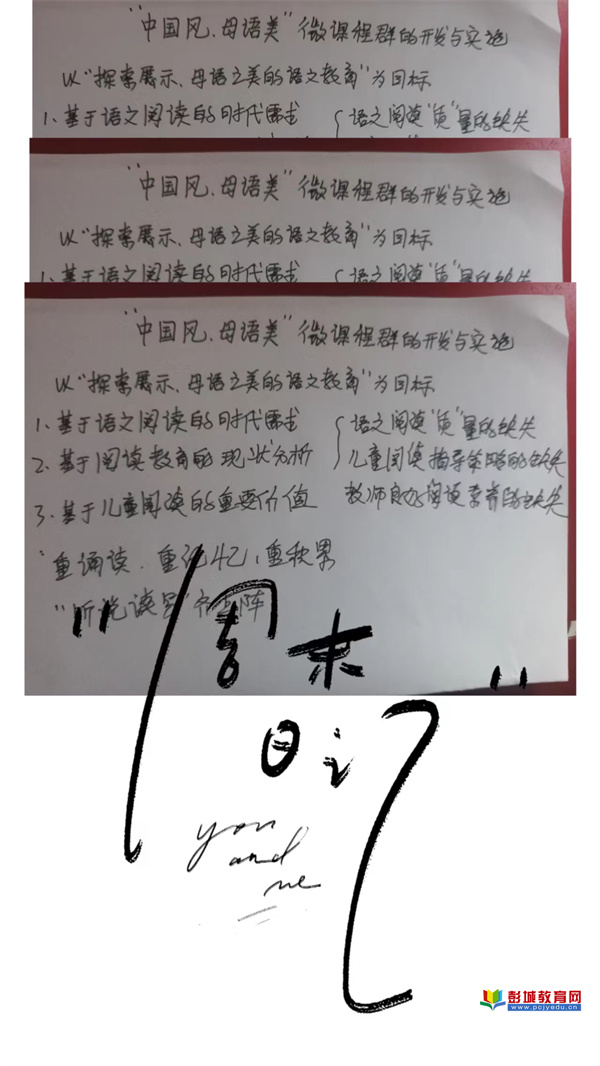 “中国风、母语美”微课程群的开发与实施
以“探索展示、母语之美的语文教育”为目标
1、基于语文阅读的时代需求 语文阅读“质”量的缺失
“中国风、母语美”微课程群的开发与实施
以“探索展示、母语之美的语文教育”为目标
1、基于语文阅读的时代需求 语文阅读“质”量的缺失
“中国风、母语美”微课程群的开发与实施
以“探索展示、母语之美的语文教育”为目标
1、基于语文阅读的时代需求 语文阅读“质”量的缺失
2、基于阅读教育的现状分析 儿童阅读指导策略的缺失
3、基于儿童阅读的重要价值 教师良好阅读素养的缺失
“重诵读、重记忆、重积累
“听说读写”齐上阵
“周末
日记”
you
and
me
彭城教育网
www.pcjyedu.cn